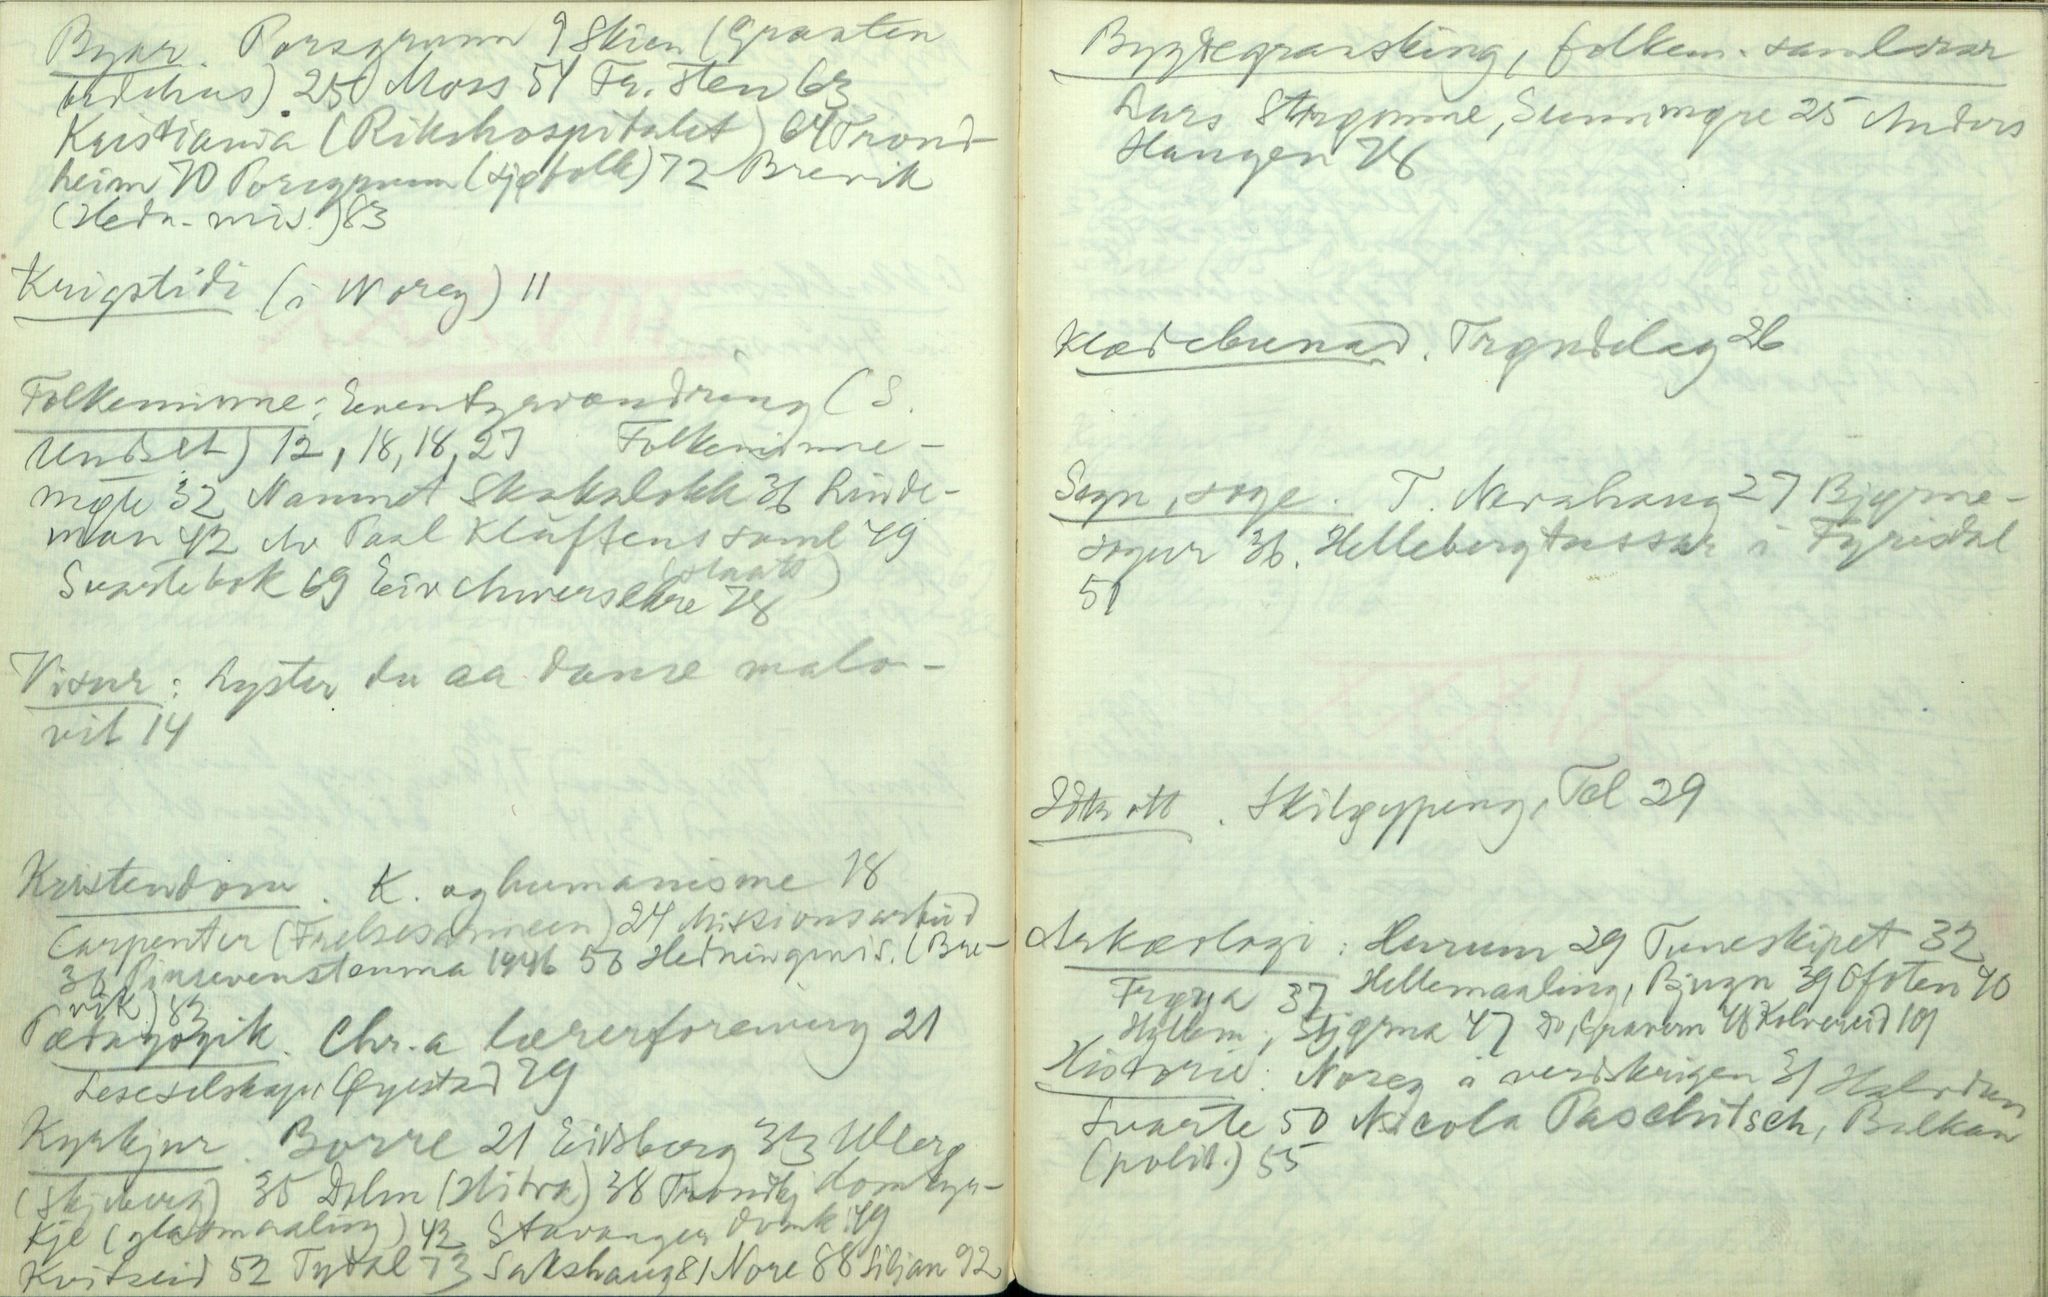 Byar. Porsgrunn 9 Skien (Graaten
ordehus) 250 Moss 51 Fr. sten 63
Kristiania (Rikshospitalet) 64 Trond-
heim 70 Porsgrunn (sjøfolk) 72 Brevik
(Hedn. mis.) 83
Krigstidi (i Noreg) 11
Folkeminne: Eventyrvandring (S.
Undset) 12, 18, 18, 27 Folkeminne-
møte 32 Namnet Skakalokk 36 Linde-
man 42 Av Paal Kluftens saml 49
Svartebok 69 Eir Amverslaare (slaatt) 78
Visur: Lyster du aa danse malo-
vit 14
Kristendom. K. og humanisme 18
Carpenter (Frelsesarmeen) 24 Missionsarbeid
36 Pinsevenstemna 1946 50 Hedningmis. (Bre-
vik) 83
Pædagogik. Chr.a lærerforening 21
Leseselskap, Øyestad 29
Kyrkjur. Borre 21 Eidsborg 33 Ullerø
(Skjeberg) 35 Dolm (Hitra) 38 Trondhj domkyr-
kje (glasmaaling) 42 Stavanger domk 49
Kviteseid 52 Tydal 73 Sakshaug 81 Nore 88 Siljan 92
Bygdegransking, folkem. samlarar
Lars Strømme, Sunnmøre 25 Anders
Haugen 78
Klædebunad. Trøndelag 26
Segn, soge. T. Nordhaug 27 Bjørne-
sogur 36. Hellebergtussar i Fyrisdal
51
Idtrott. Skiløyping, Tel 29
Arkæologi: Hurum 29 Tuneskipet 32
Frøya 37 Hellemaaling, Bjugn 39 Ofoten 40
Hyllem, Stjørna 47 Do, Gravem 48 Kolvereid 101
Historie: Noreg i verdskrigen 31 Halvdan
Svarte 50 Nicola Paschitsch, Balkan
(polit.) 55